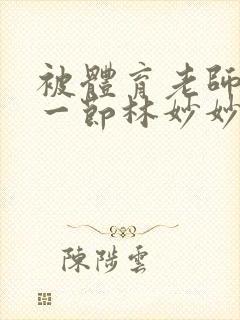 被體育老師
一節林妙妙
陳陟雲